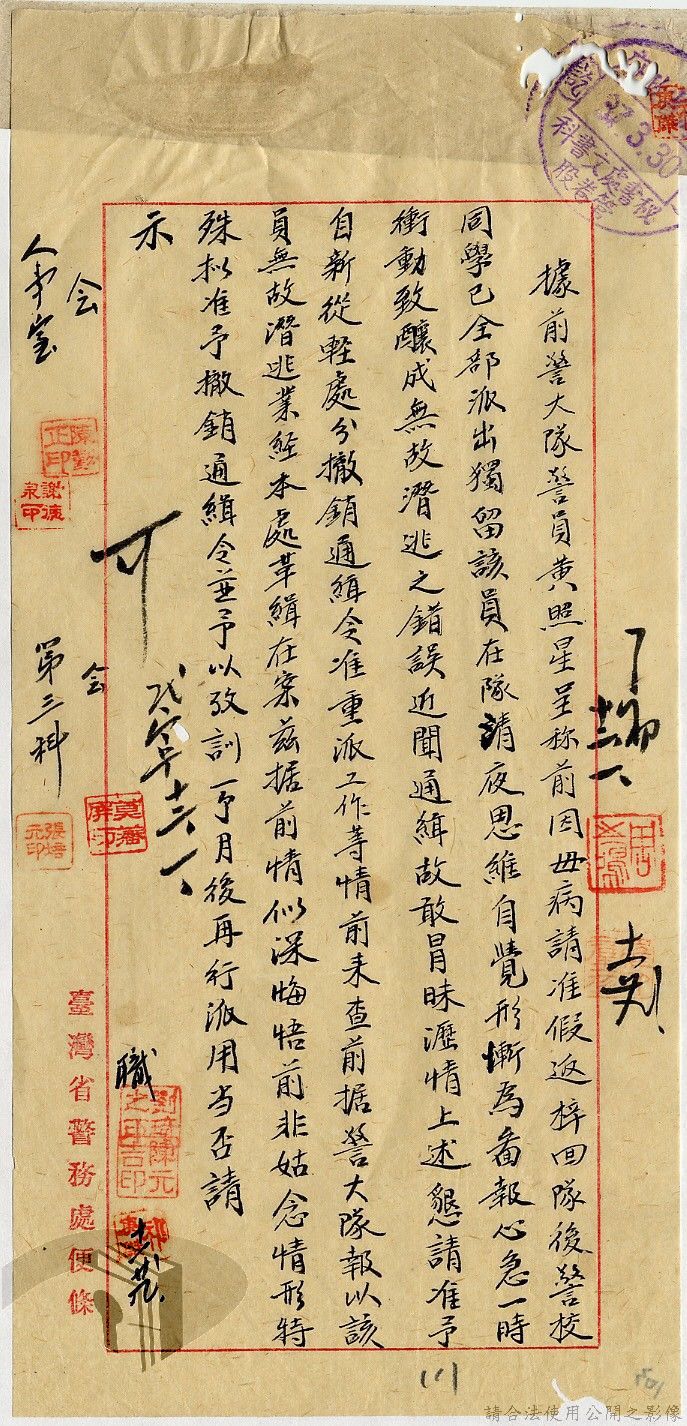 據前警大隊警員黃照星呈称前因母病請准假返梓回隊後警校
同學已全部派出獨留該員在隊清夜思維自覺形慚為圖報心急一時
衝動致釀成無故潛逃之錯誤近聞通緝故敢冒昧瀝情上述懇請准予
自新從輕處分撤銷通緝令准重派工作等情前來查前据警大隊報以該
員無故潛逃業経本處革緝在案茲据前情似深悔悟前非姑念情形特
殊拟准予撤銷通緝令並予以攷訓一予月後再行派用当否請
示
職
会
人事室
会
第三科
可
臺灣省警務處便條
37.3.30
秘書處文書科
股
請合法使用公開之影像